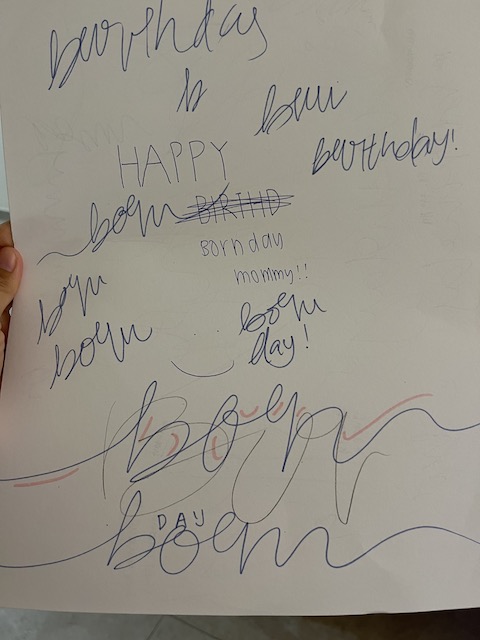 birthday
b
bori
birthday!
HAPPY
born BIRTHD
Born day
mommy!!
born
born
born
day!
born
DAY
born